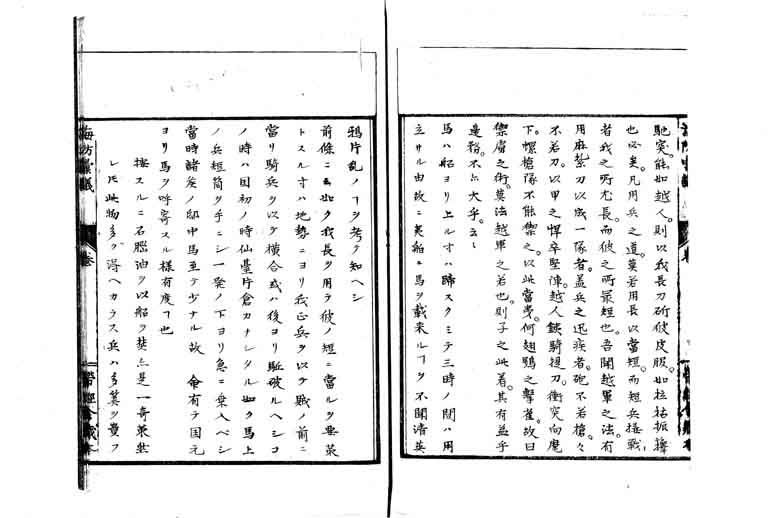 馳突。能如越人。則以我長刀斫彼皮服。如拉枯振擇
也必矣。凡用兵之道。莫若用長以當短。而短兵接戰
者我之所尤長。而彼之所最短也。吾聞越軍之法。有
用麻紮刀以成一隊者。蓋兵之迅疾者。砲不若槍々
不若刀。以甲之悍卒堅陣。越人鉄騎提刀。衝突向麾
下。螺槍隊不能禦之。以此當夷。何翅鶚之擊雀。故曰
禦虜之術。莫法越軍之若也。則子之此着。其有益乎
邊務。不亦大乎。云々
馬ハ船ヨリ上ル寸ハ蹄スクミテ三時ノ間ハ用
立サル由故ニ夷船ニ馬ヲ載来ルヿヲ不聞清英
鴉片乱ノヿヲ考テ知ヘシ
前條ニ云如ク我長ヲ用テ彼ノ短ニ當ルヲ要策
トスル寸ハ地勢ニヨリ我正兵ヲ以テ賊ノ前ニ
當リ騎兵ヲ以テ横合或ハ後ヨリ駈破ルヘシコ
ノ時ハ国初ノ時仙臺片倉カナシタル如ク馬上
ノ兵短筒ヲ手ニシ一発ノ下ヨリ急ニ乗入ベシ
當時諸侯ノ邸中馬至テ少ナル故 命有テ国元
ヨリ馬ヲ呼寄スル様有度ヿ也
按スルニ石脳油ヲ以船ヲ焚亦是一奇策然
レ𪜈此物多ク得ヘカラス兵ハ多算ヲ貴フ
海防彙議
巻